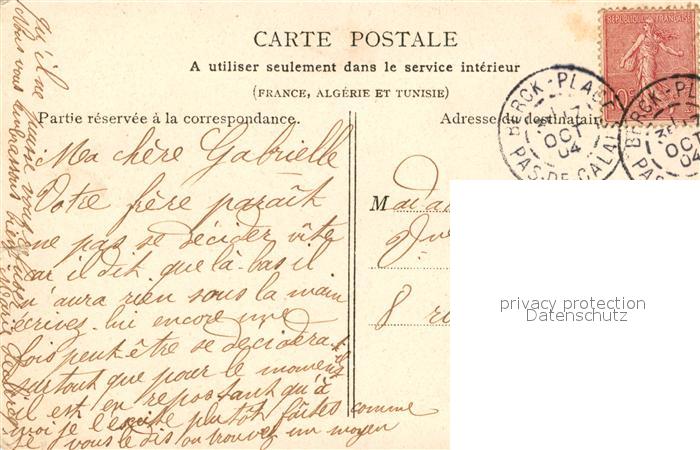 CARTE POSTALE
A utiliser seulement dans le service intérieur
(FRANCE, ALGÉRIE ET TUNISIE)
Partie réservée à la correspondance.
Adresse du destinataire
REPUBLIQUE FRANÇAISE
BERCK-PLAGE
17
OCT
04
PAS-DE-CALAIS
BERCK-PL
OCT
04
PAS
Ma chère Gabrielle
Votre frère paraît
ne pas se décider vite
car il dit que là-bas il
n'aura rien sous la main
écrivez-lui encore une
fois peut-être se decidera-t-il
surtout que pour le moment
il est en repos tant qu'à
moi je plutôt faites comme
je vous le dis ou trouvez un moyen
qu'il ne vous
Nous vous embrassons bien
Marie
Mada
8 ru
privacy protection
Datenschutz